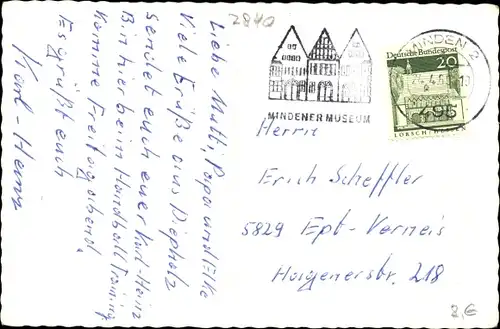 2840
Liebe Mutti, Papa und Elke
Viele Grüße aus Diepholz
sendet euch euer Karl-Heinz
Bin hier beim Handball Training
Komme Freitagabend.
Es grüßt euch
Karl-Heinz
MINDENER MUSEUM
MINDEN 2
495
Deutsche Bundespost
20
LORSCH
Herrn
Erich Scheffler
5829 Ept-Verneis
Hagenerstr. 218
2,€